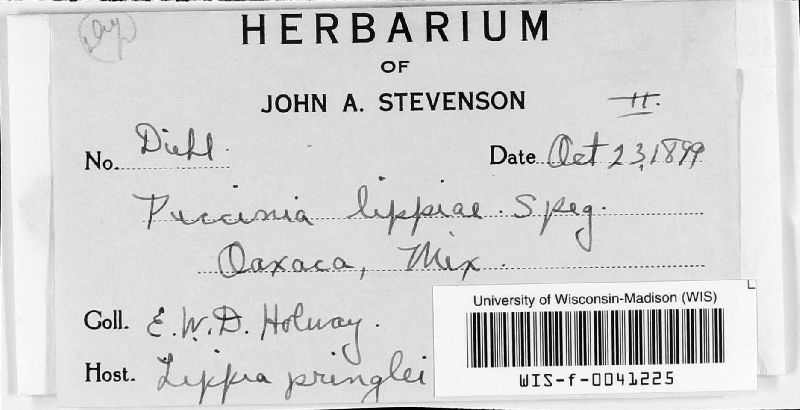 HERBARIUM
OF
JOHN A. STEVENSON
II.
No. Diehl. Date Oct 23, 1899
Puccinia lippiae Speg.
Oaxaca, Mex.
Coll. E.W.D. Holway.
Host. Lippia pringlei
University of Wisconsin-Madison (WIS)
WIS-f-0041225